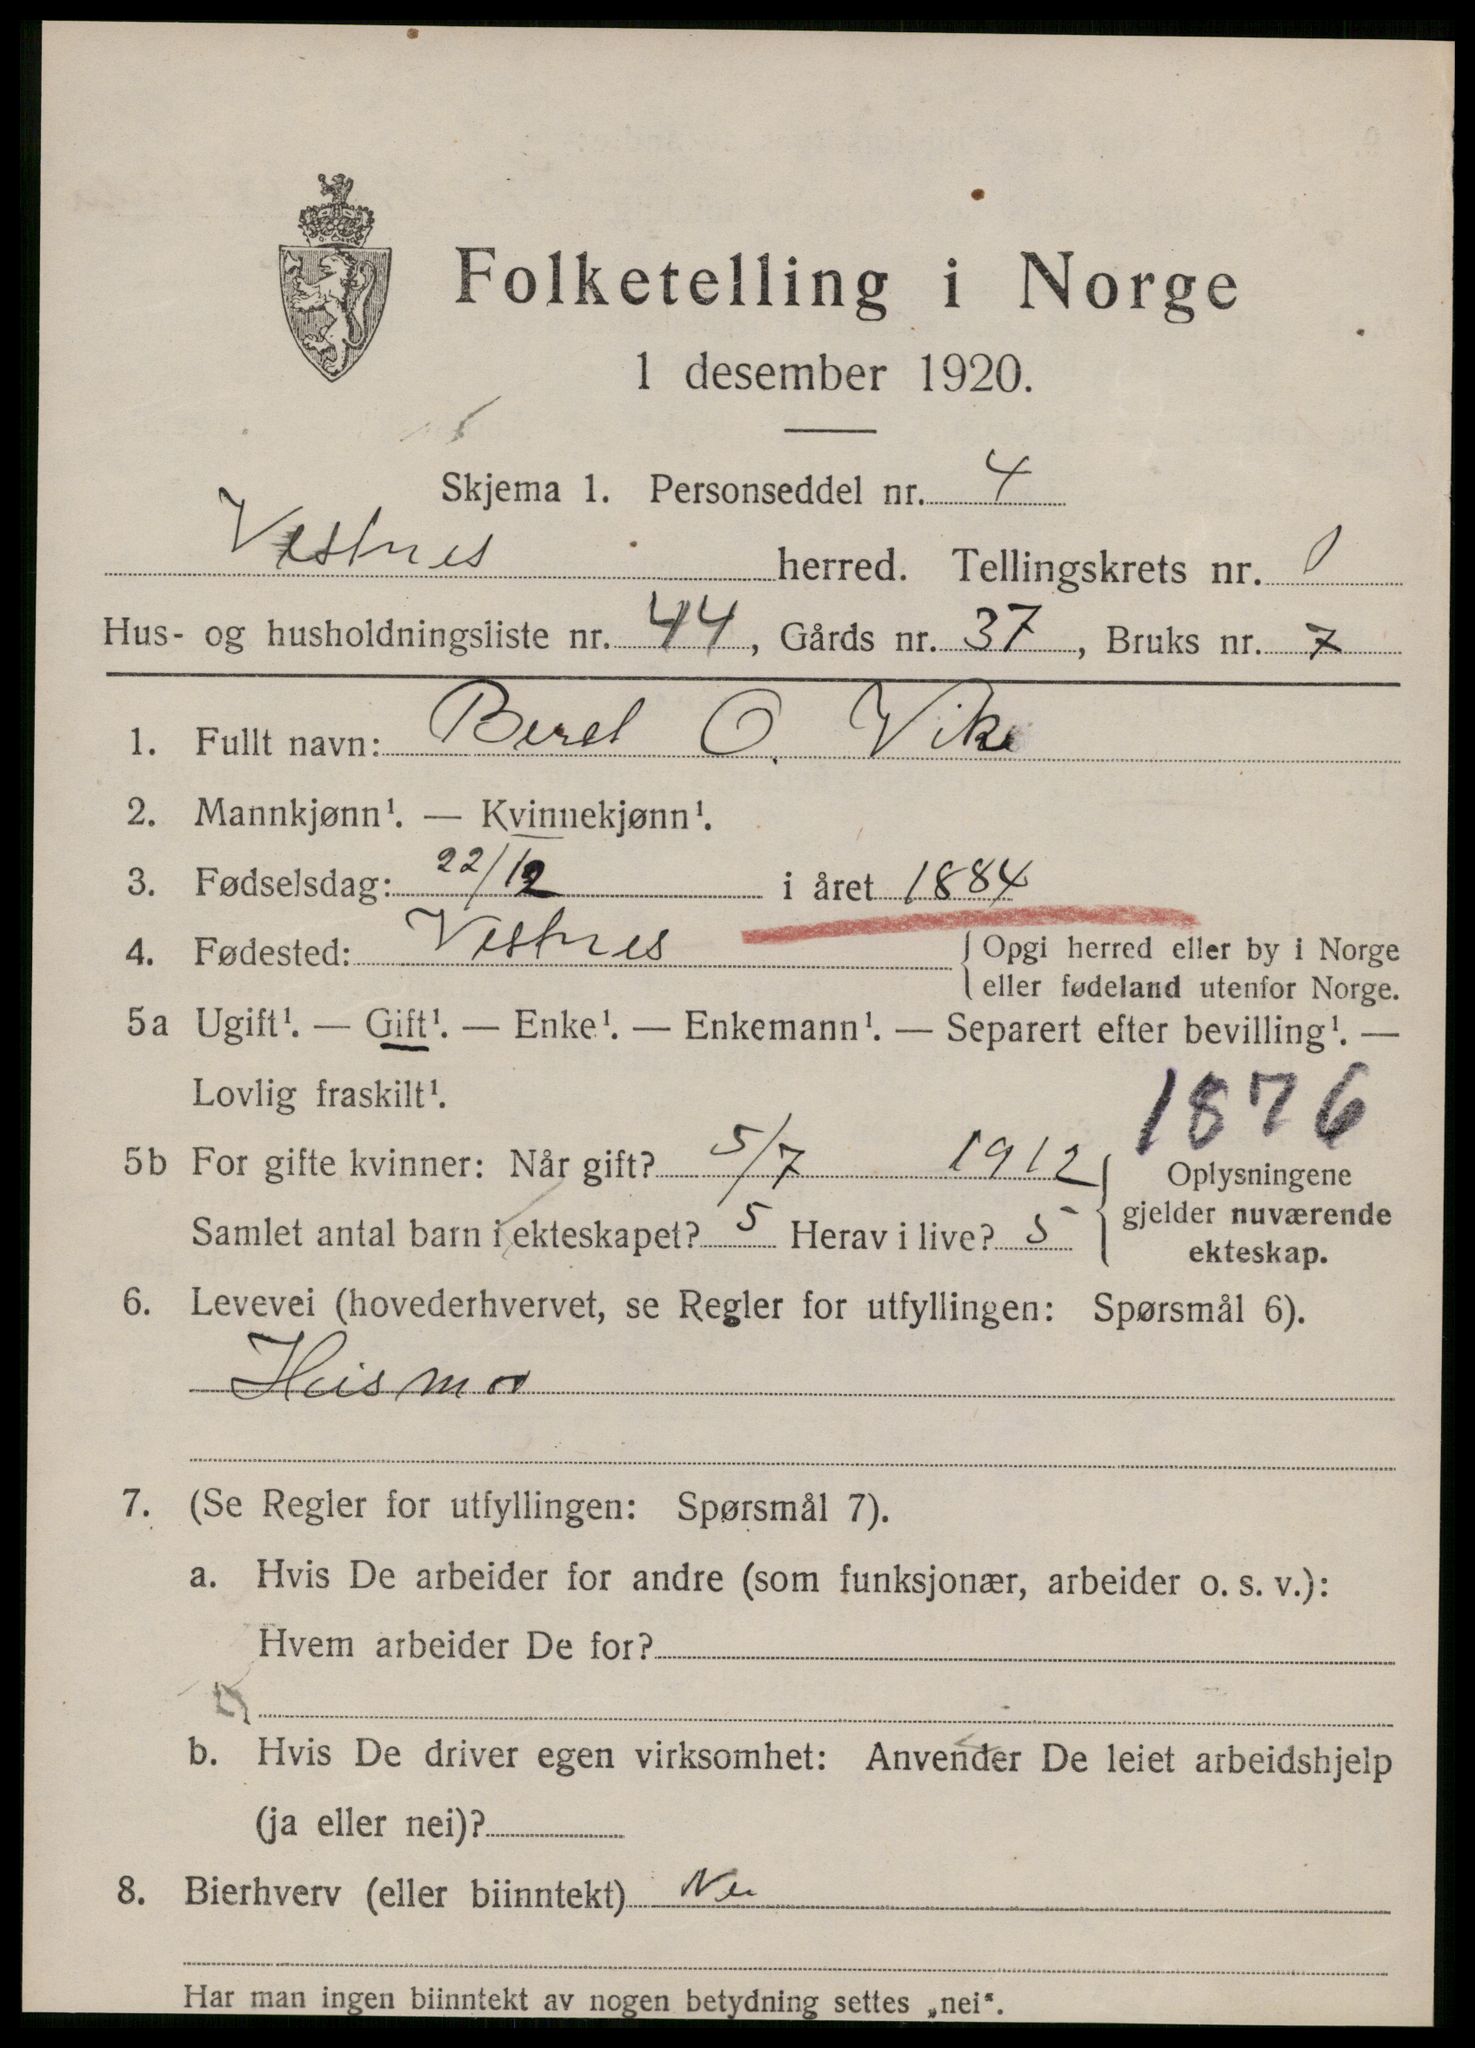 Folketelling i Norge
1 desember 1920.
Skjema 1. Personseddel nr. 4
Vestnes herred. Tellingskrets nr.
Hus- og husholdningsliste nr. 44, Gårds nr. 37, Bruks nr. 7
1. Fullt navn: Beret O. Vike
2. Mannkjønn¹. — Kvinnekjønn¹.
3. Fødselsdag: 22/12 i året 1884
4. Fødested: Vestnes { Opgi herred eller by i Norge
eller fødeland utenfor Norge.
5a Ugift¹. — Gift¹. — Enke¹. — Enkemann¹. — Separert efter bevilling¹. —
Lovlig fraskilt¹.
1876
5b For gifte kvinner: Når gift? 5/7 1912
Samlet antal barn i ekteskapet? 5 Herav i live? 5
{ Oplysningene
gjelder nuværende
ekteskap.
6. Levevei (hovederhvervet, se Regler for utfyllingen: Spørsmål 6).
Husmor
7. (Se Regler for utfyllingen: Spørsmål 7).
a. Hvis De arbeider for andre (som funksjonær, arbeider o. s. v.):
Hvem arbeider De for?
b. Hvis De driver egen virksomhet: Anvender De leiet arbeidshjelp
(ja eller nei)?
8. Bierhverv (eller biinntekt) Nei
Har man ingen biinntekt av nogen betydning settes „nei“.